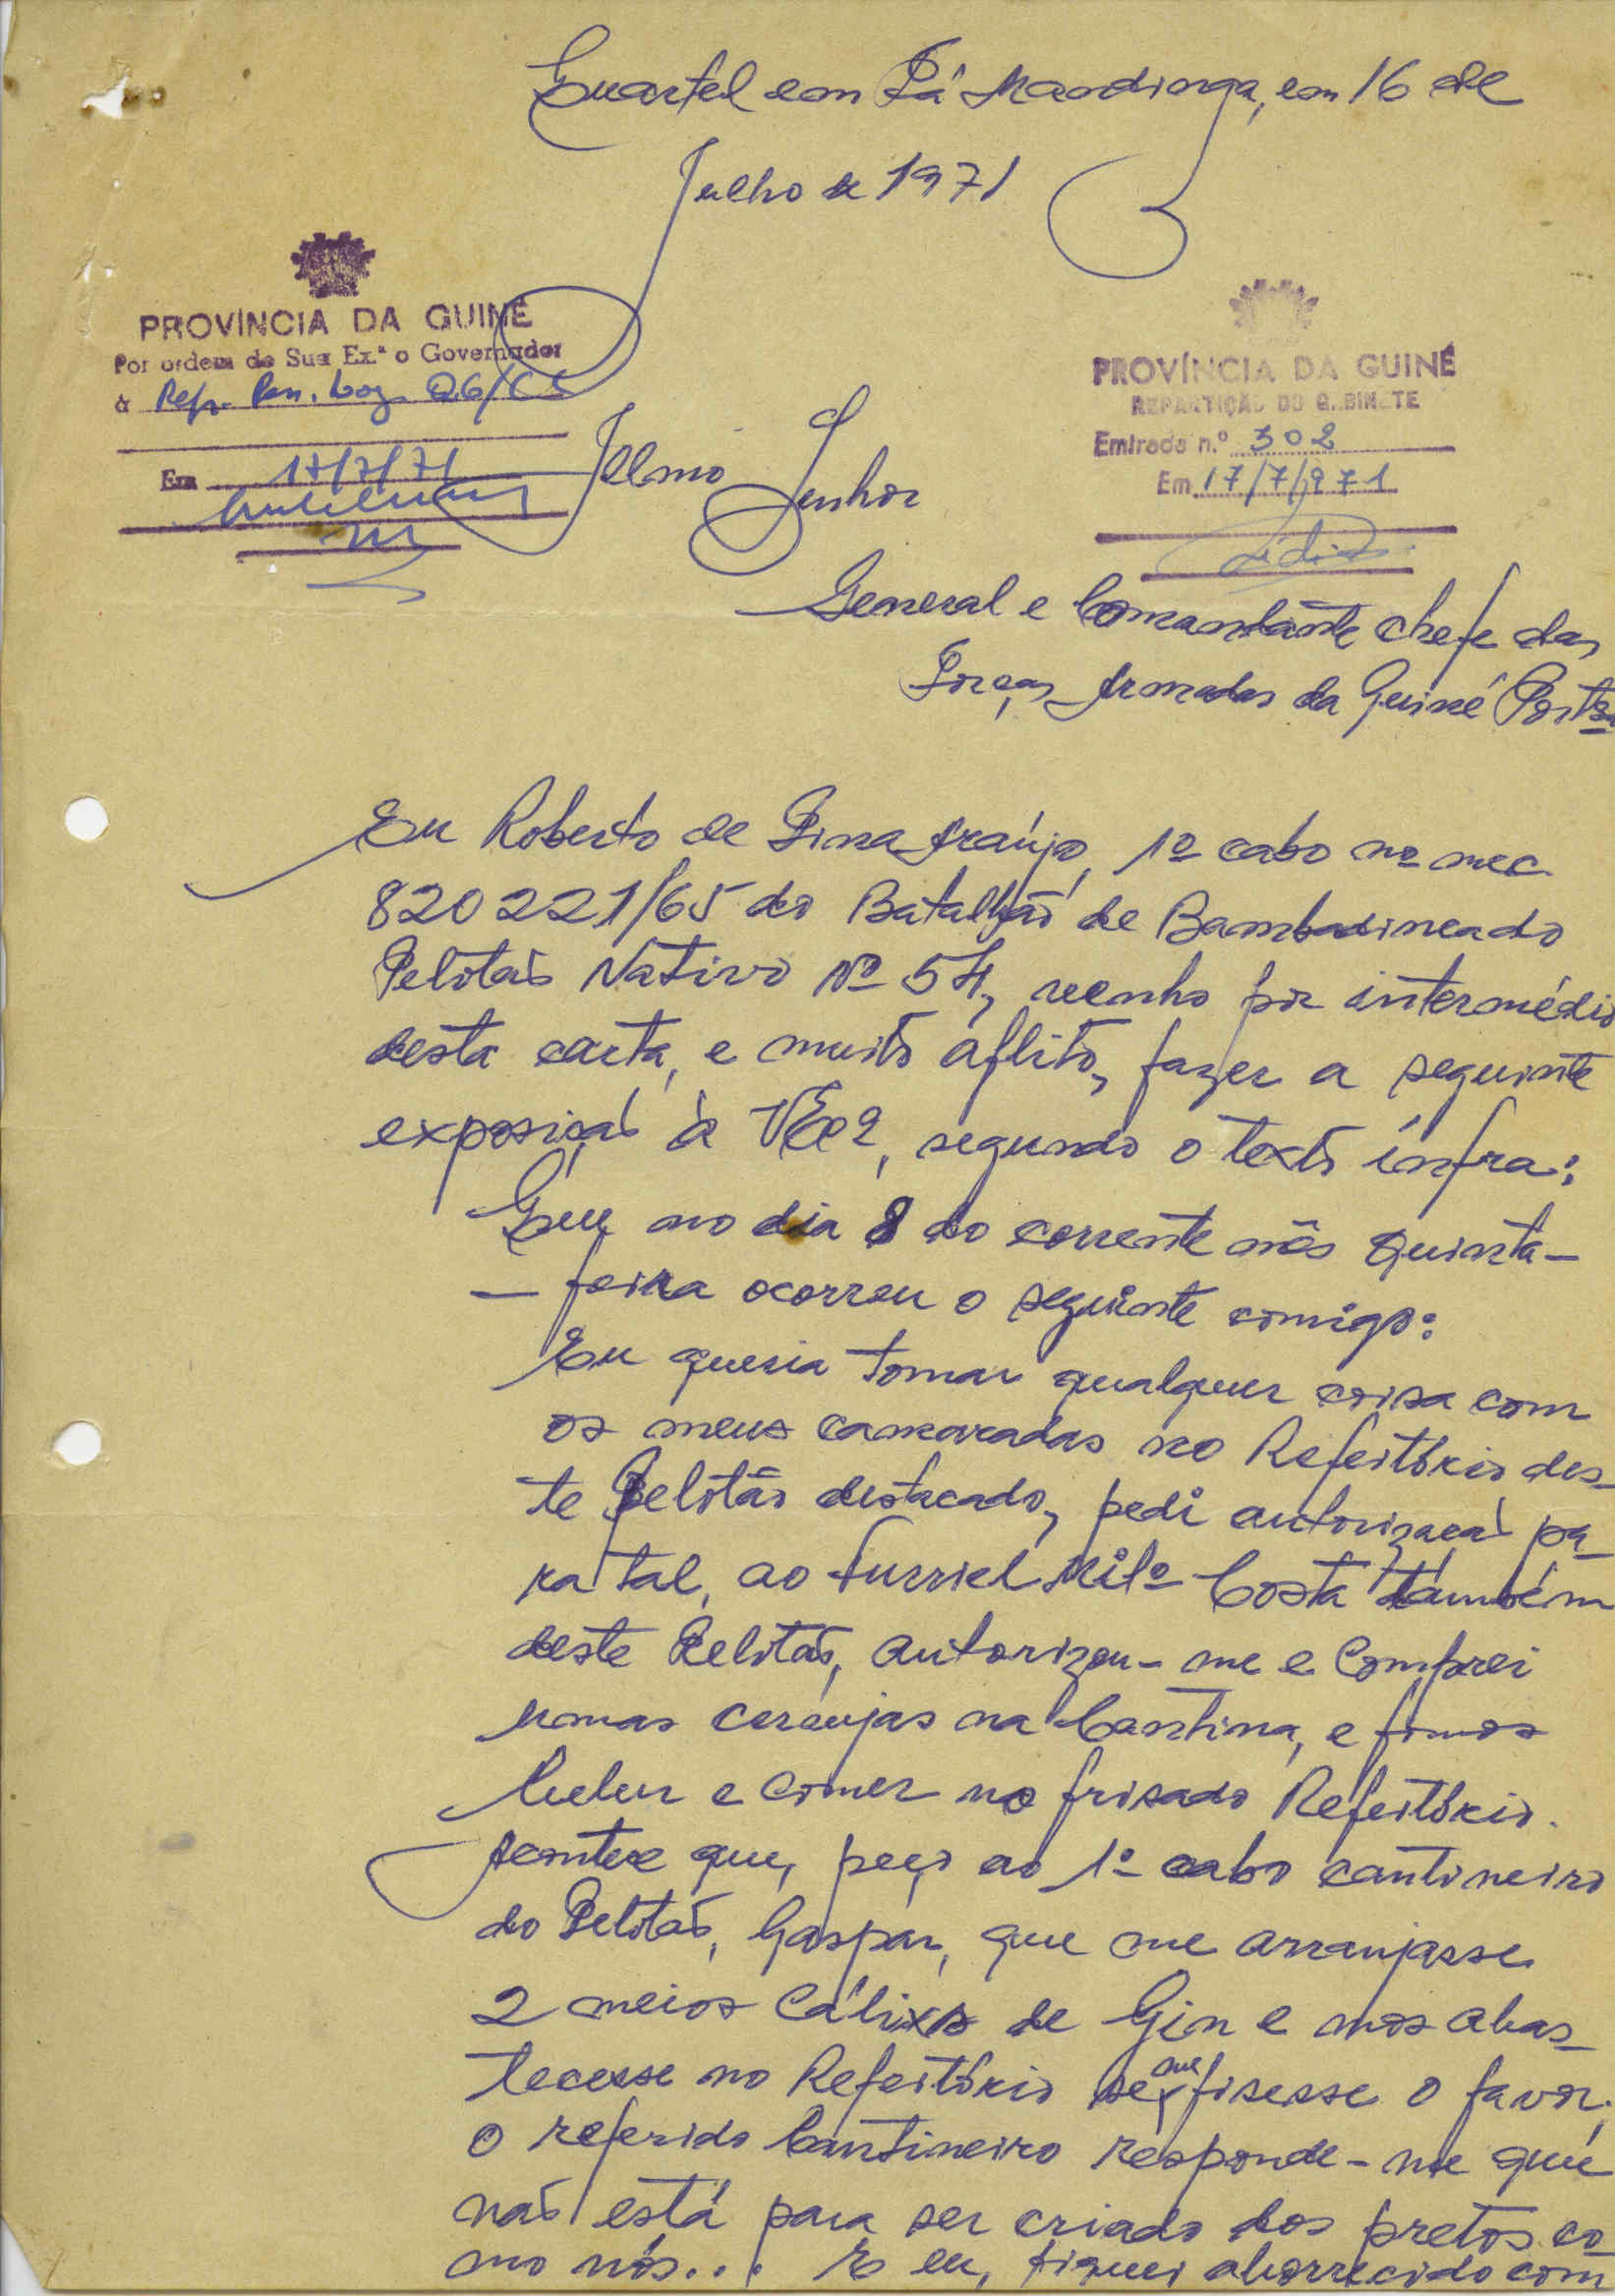 Quartel em Fá Mandinga, em 16 de
Julho de 1971
PROVÍNCIA DA GUINÉ
Por ordem de Sua Ex.ª o Governador
à Rep.
Em 17/7/71
PROVÍNCIA DA GUINÉ
REPARTIÇÃO DO GABINETE
Entrada n.º 302
Em 17/7/1971
Ilmo Senhor
General e Comandante Chefe das
Forças Armadas da Guiné Port
Eu Roberto de Pina Araújo, 1º cabo nº mec
820221/65 do Batalhão de Bambadinca do
Pelotão Nativo Nº 54, venho por intermédio
desta carta, e muito aflito, fazer a seguinte
exposição à VExª, segundo o texto infra:
Que no dia 8 do corrente mês quinta-
-feira ocorreu o seguinte comigo:
Eu queria tomar qualquer coisa com
os meus camaradas no Refeitório des-
te Pelotão destacado, pedi autorização pa-
ra tal, ao furriel Milº Costa também
deste Pelotão, autorizou-me e comprei
umas cervejas na Cantina, e fomos
beber e comer no frisado Refeitório.
Acontece que, peço ao 1º cabo cantineiro
do Pelotão, Gaspar, que me arranjasse
2 meios Cálixs de Gin e nos abas-
tecesse no Refeitório se me fisesse o favor.
O referido Cantineiro responde-me que
não está para ser criado dos pretos co-
mo nós... E eu, fiquei aborrecido com